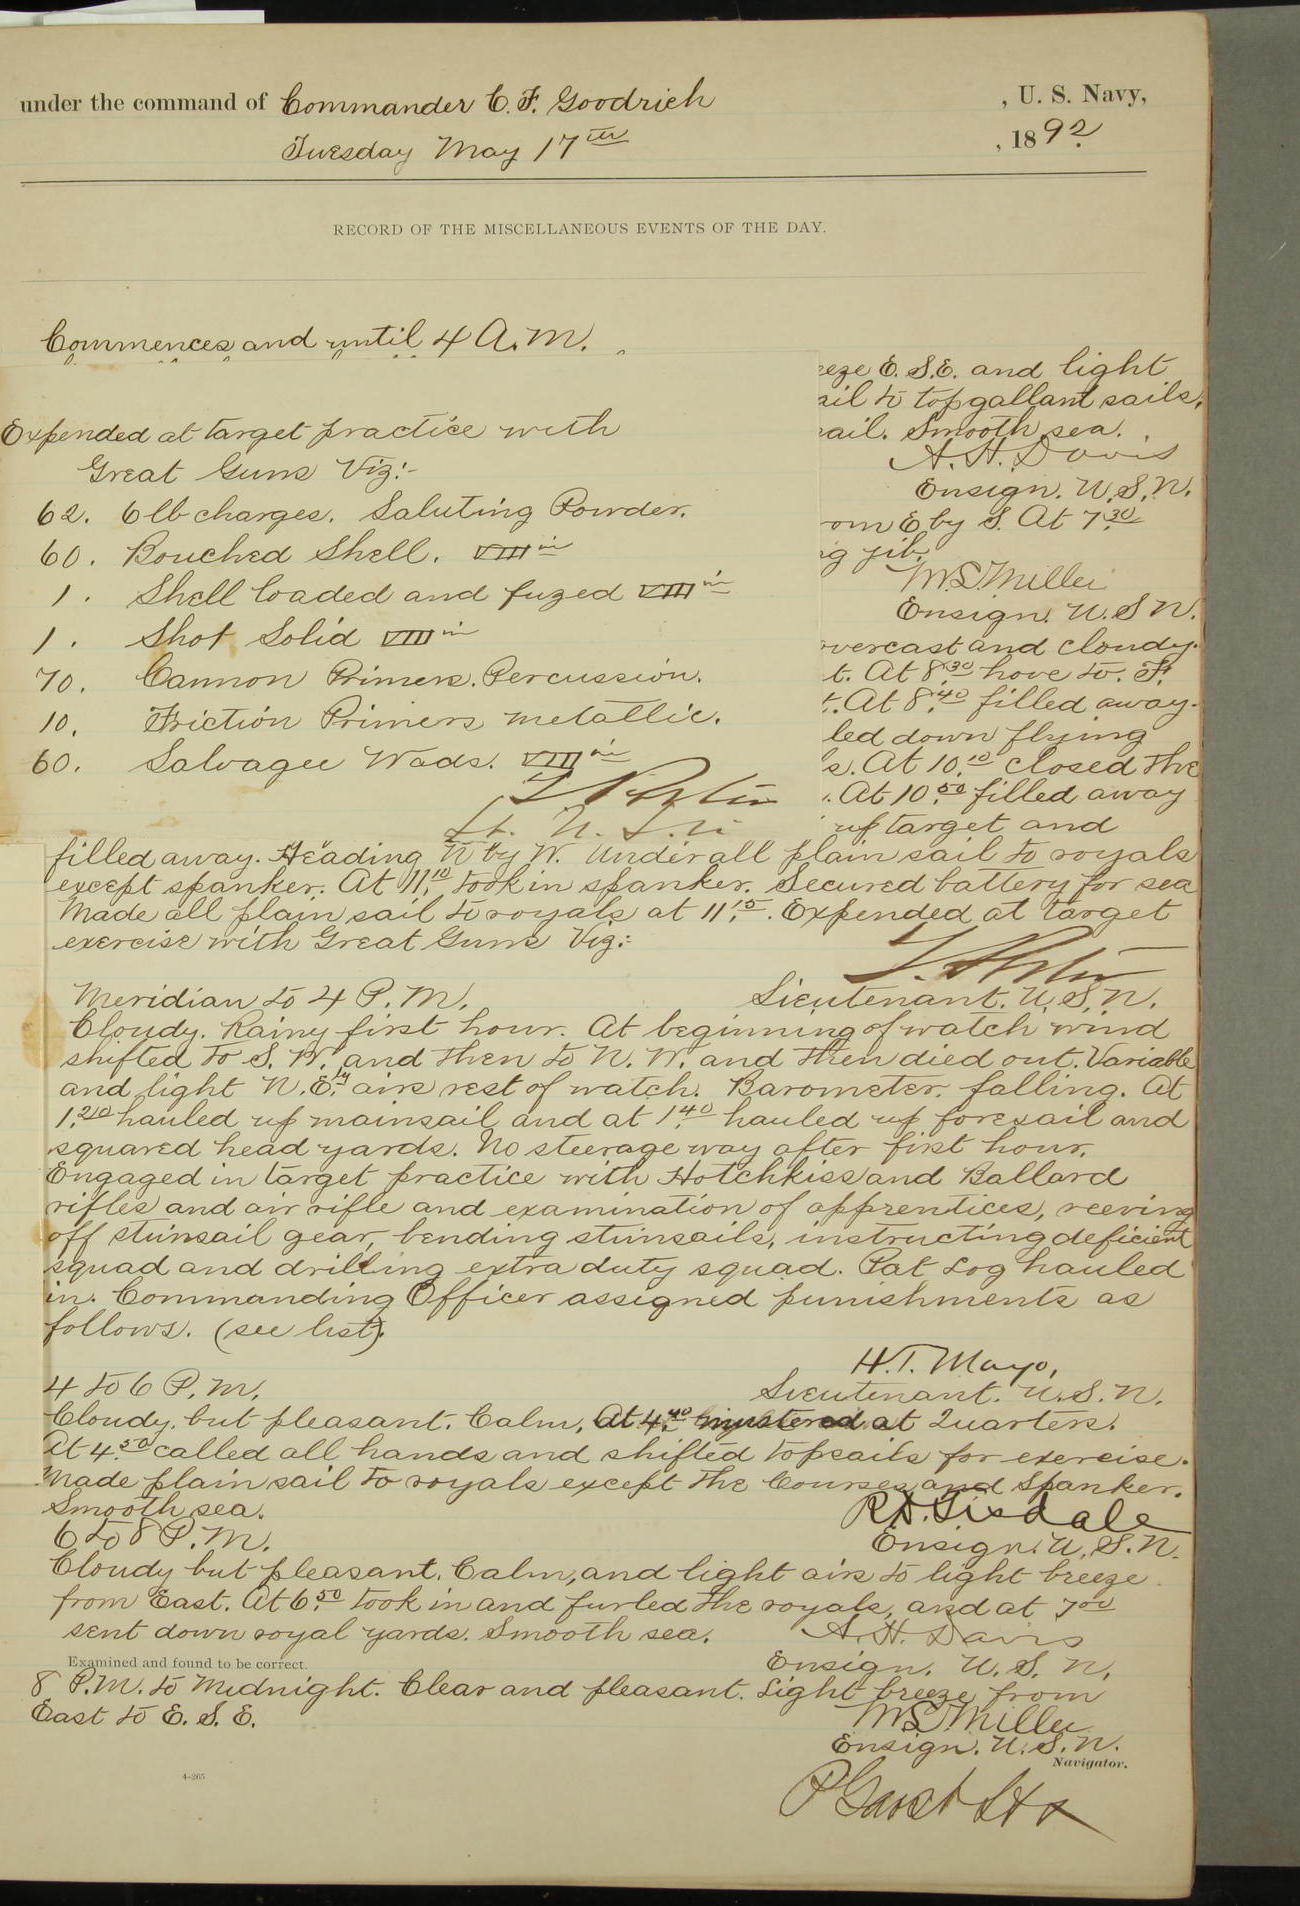 under the command of Commander C. F. Goodrich , U. S. Navy,
Tuesday May 17th , 1892.
RECORD OF THE MISCELLANEOUS EVENTS OF THE DAY.
Commences and until 4 A. M.
Expended at target practice with
Great Guns Viz:-
62. 6 lb charges. Saluting Powder.
60. Bouched Shell. VIII in
1. Shell loaded and fuzed VIII in
1. Shot Solid VIII in
70. Cannon Primers. Percussion.
10. Friction Primers metallic.
60. Salvagee Wads. VIII in
eeze E. S.E. and light
ail to topgallant sails.
ail. Smooth sea.
A. H. Davis
Ensign. U.S.N.
rom E by S. At 7.30
ng jib.
M.L. Miller
Ensign. U.S.N.
vercast and cloudy.
t. At 8.30 hove to. F.
t. At 8.40 filled away.
led down flying
s. At 10.10 closed the
. At 10.50 filled away
up target and
filled away. Heading N by W. Under all plain sail to royals
except spanker. At 11.10 took in spanker. Secured battery for sea
Made all plain sail to royals at 11.15. Expended at target
exercise with Great Guns Viz:-
Lieutenant. U.S.N.
Meridian to 4 P.M.
Cloudy. Rainy first hour. At beginning of watch wind
shifted to S. W. and then to N. W. and then died out. Variable
and light N. E. airs rest of watch. Barometer. falling. At
1.20 hauled up mainsail and at 1.40 hauled up foresail and
squared head yards. No steerage way after first hour.
Engaged in target practice with Hotchkiss and Ballard
rifles and air rifle and examination of apprentices, reeving
off stunsail gear, bending stunsails, instructing deficient
squad and drilling extra duty squad. Pat Log hauled
in. Commanding Officer assigned punishments as
follows. (see list).
H.T. Mayo,
Lieutenant. U.S.N.
4 to 6 P.M.
Cloudy. but pleasant. Calm. At 4.40 mustered at Quarters.
At 4.50 called all hands and shifted topsails for exercise.
Made plain sail to royals except the Courses and Spanker.
Smooth sea.
R.D. Tisdale
Ensign. U.S.N.
6 to 8 P.M.
Cloudy but pleasant. Calm, and light airs to light breeze
from East. At 6.50 took in and furled the royals, and at 7.00
sent down royal yards. Smooth sea.
A. H. Davis
Ensign. U.S.N.
Examined and found to be correct.
8 P.M. to Midnight. Clear and pleasant. Light breeze from
East to E. S. E.
M.L. Miller
Ensign. U.S.N.
Navigator.
4-265